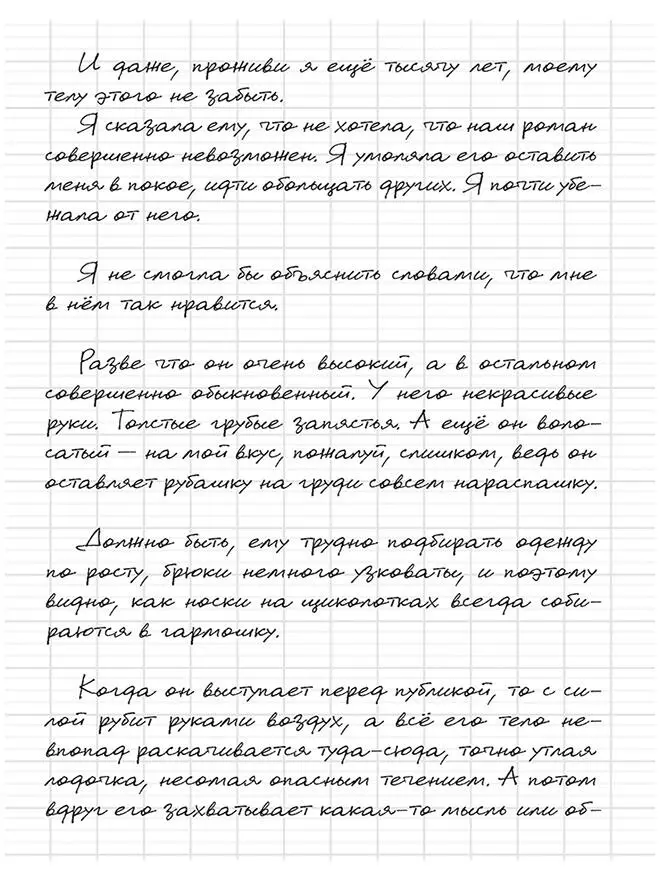 И даже, проживи я ещё тысячу лет, моему
телу этого не забыть.
Я сказала ему, что не хотела, что наш роман
совершенно невозможен. Я умоляла его оставить
меня в покое, идти обольщать других. Я почти убе-
жала от него.
Я не смогла бы объяснить словами, что мне
в нём так нравится.
Разве что он очень высокий, а в остальном
совершенно обыкновенный. У него некрасивые
руки. Толстые грубые запястья. А ещё он воло-
сатый — на мой вкус, пожалуй, слишком, ведь он
оставляет рубашку на груди совсем нараспашку.
Должно быть, ему трудно подбирать одежду
по росту, брюки немного узковаты, и поэтому
видно, как носки на щиколотках всегда соби-
раются в гармошку.
Когда он выступает перед публикой, то с си-
лой рубит руками воздух, а всё его тело не-
впопад раскачивается туда-сюда, точно утлая
лодочка, несомая опасным течением. А потом
вдруг его захватывает какая-то мысль или об-